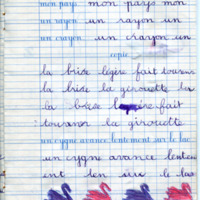 mon pays mon pays mon
un rayon un rayon un
un crayon un crayon un
copie
la brise légère fait tourner
la brise la girouette la
la brise légère fait
tourner la girouette
un cygne avance lentement sur le lac
un cygne avance lentem
ent sur le lac